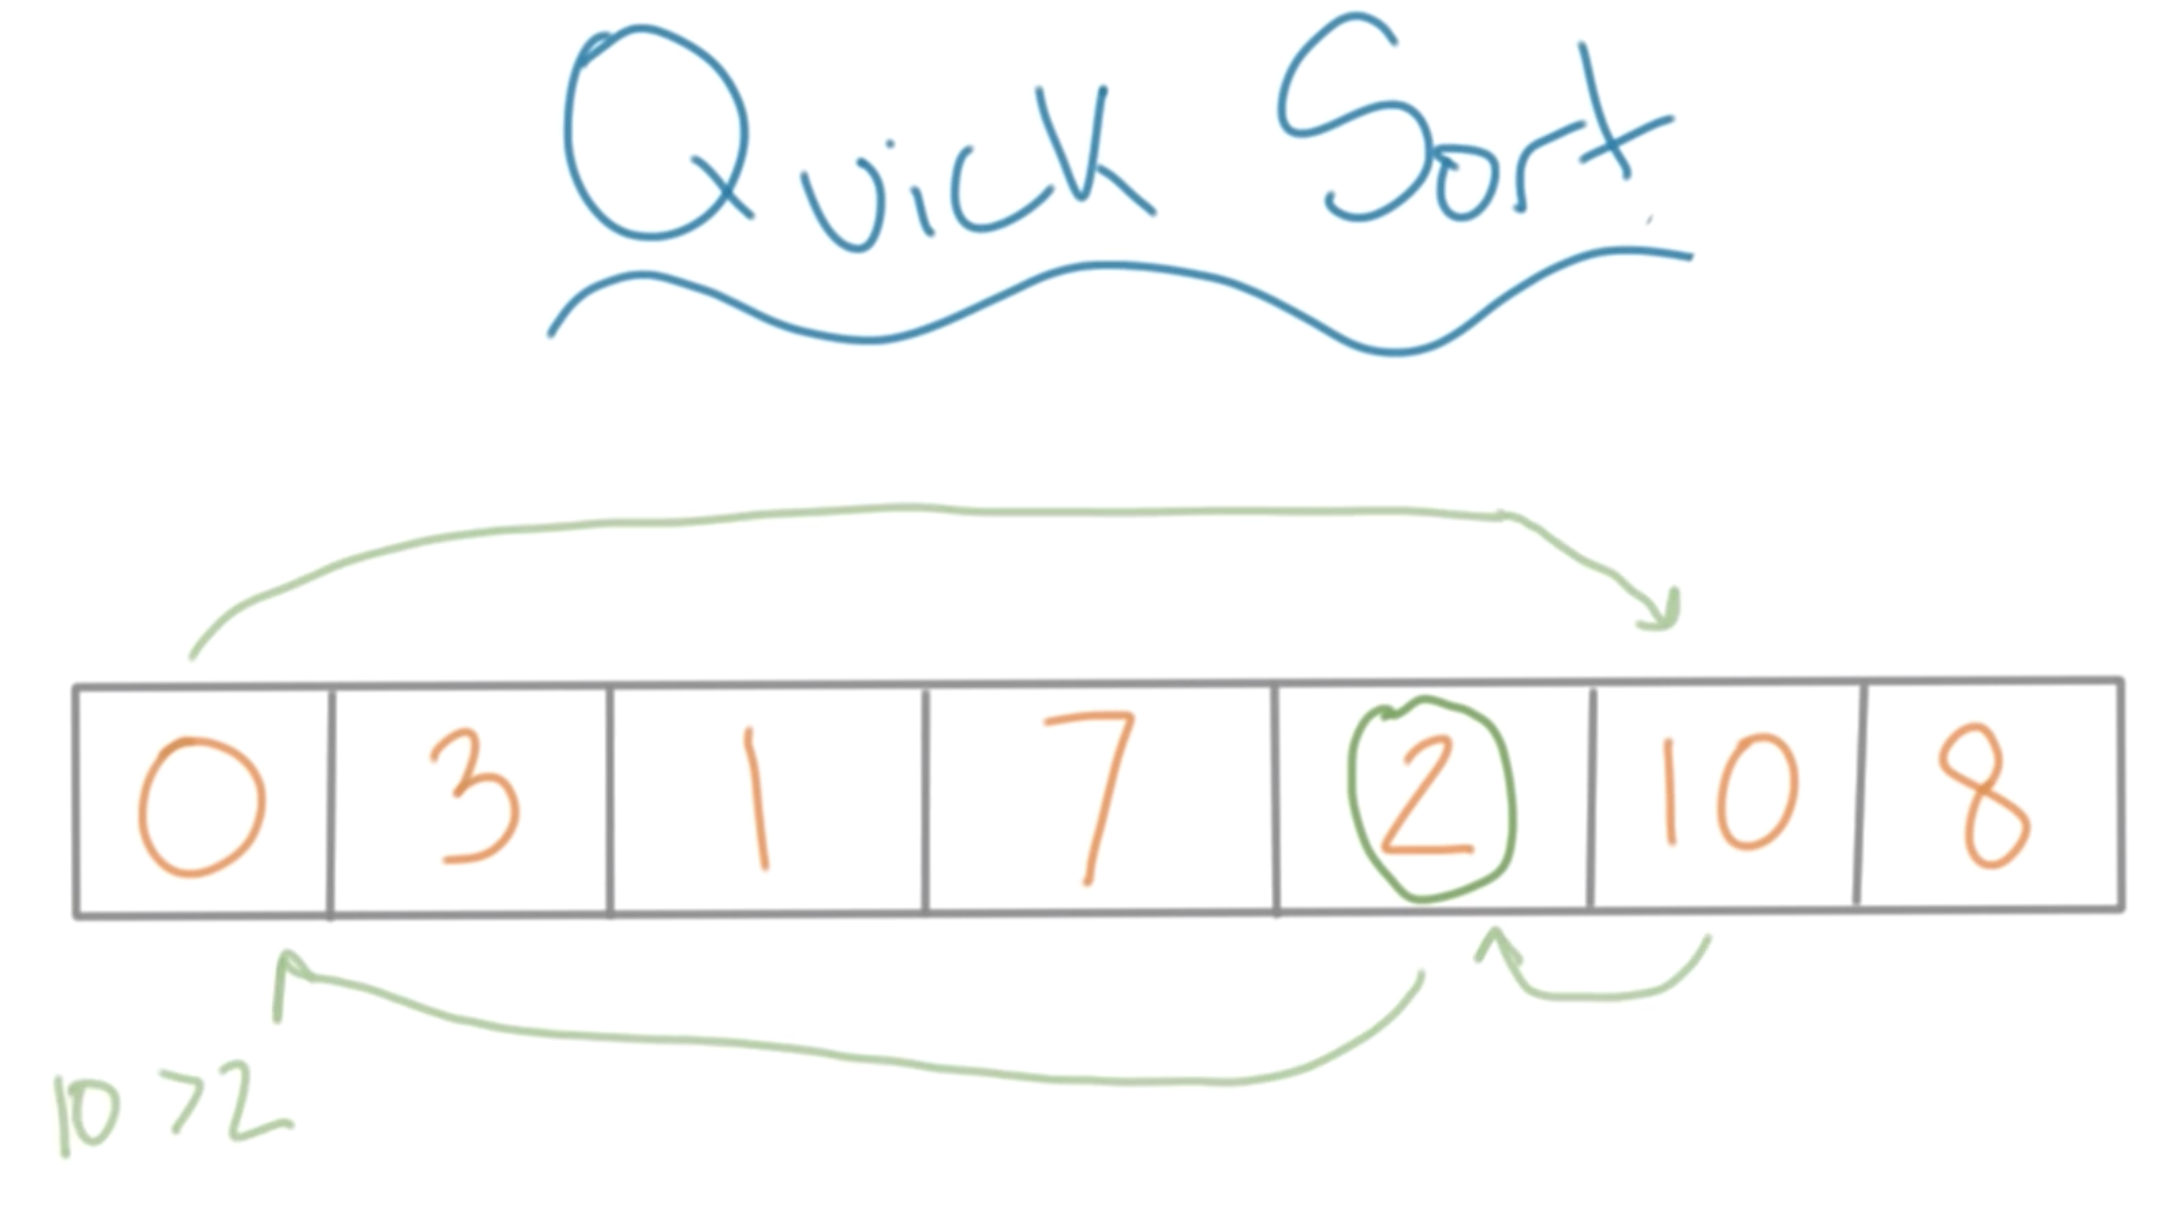 Quick Sort
0 3 1 7 2 10 8
10 > 2